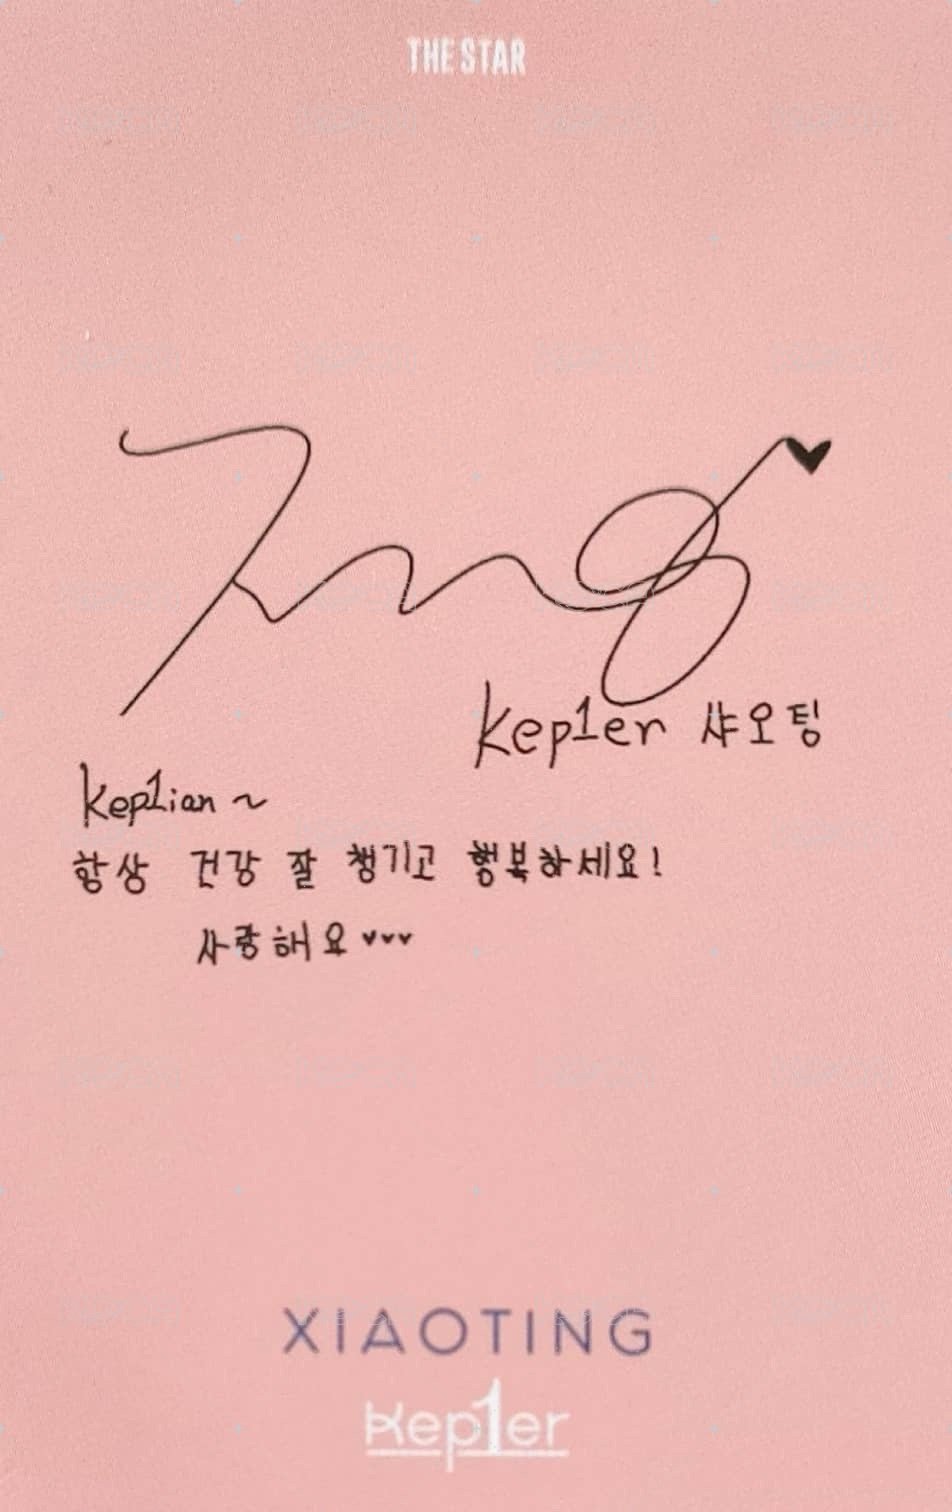 THE STAR
Kep1er 샤오팅
Kep1ian ~
항상 건강 잘 챙기고 행복하세요!
사랑해요♥♥♥
XIAOTING
Kep1er